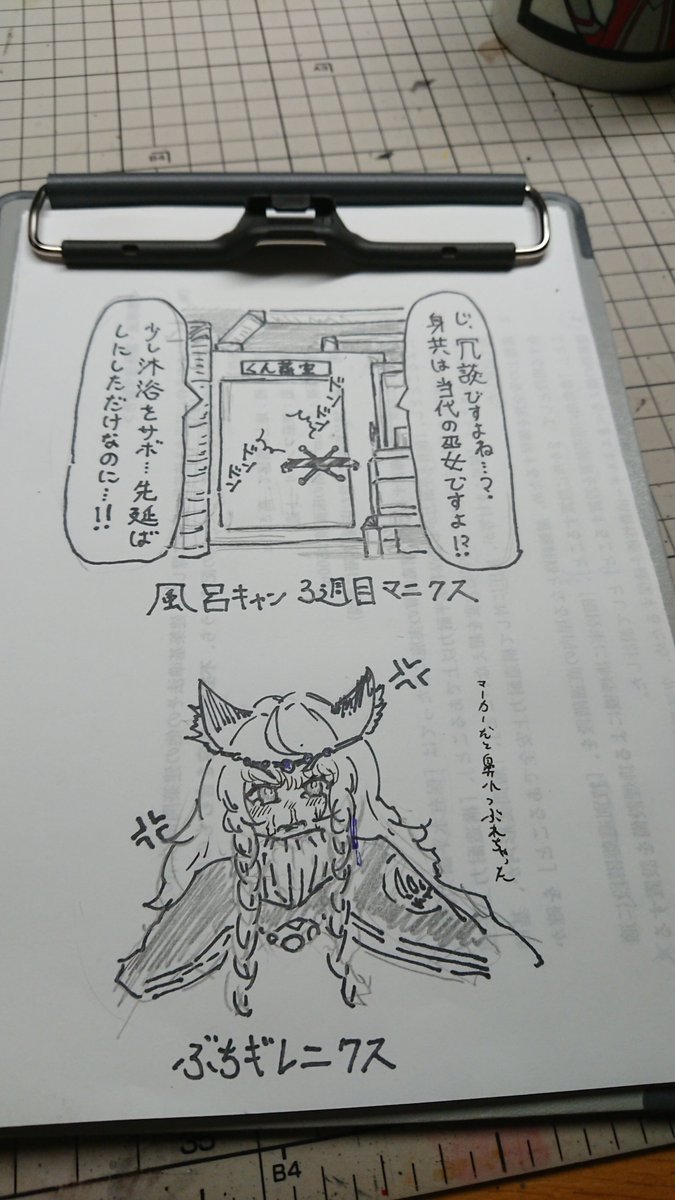 じ、冗談ですよね…？
身共は当代の巫女ですよ!?
くん蒸室
ドンドン
ドンドン
少し沐浴をサボ…先延ば
しにしただけなのに…!!
風呂キャン3週目マニクス
マーカーだと鼻水つぶれちゃった
ぶちギレニクス
35
B4
B4